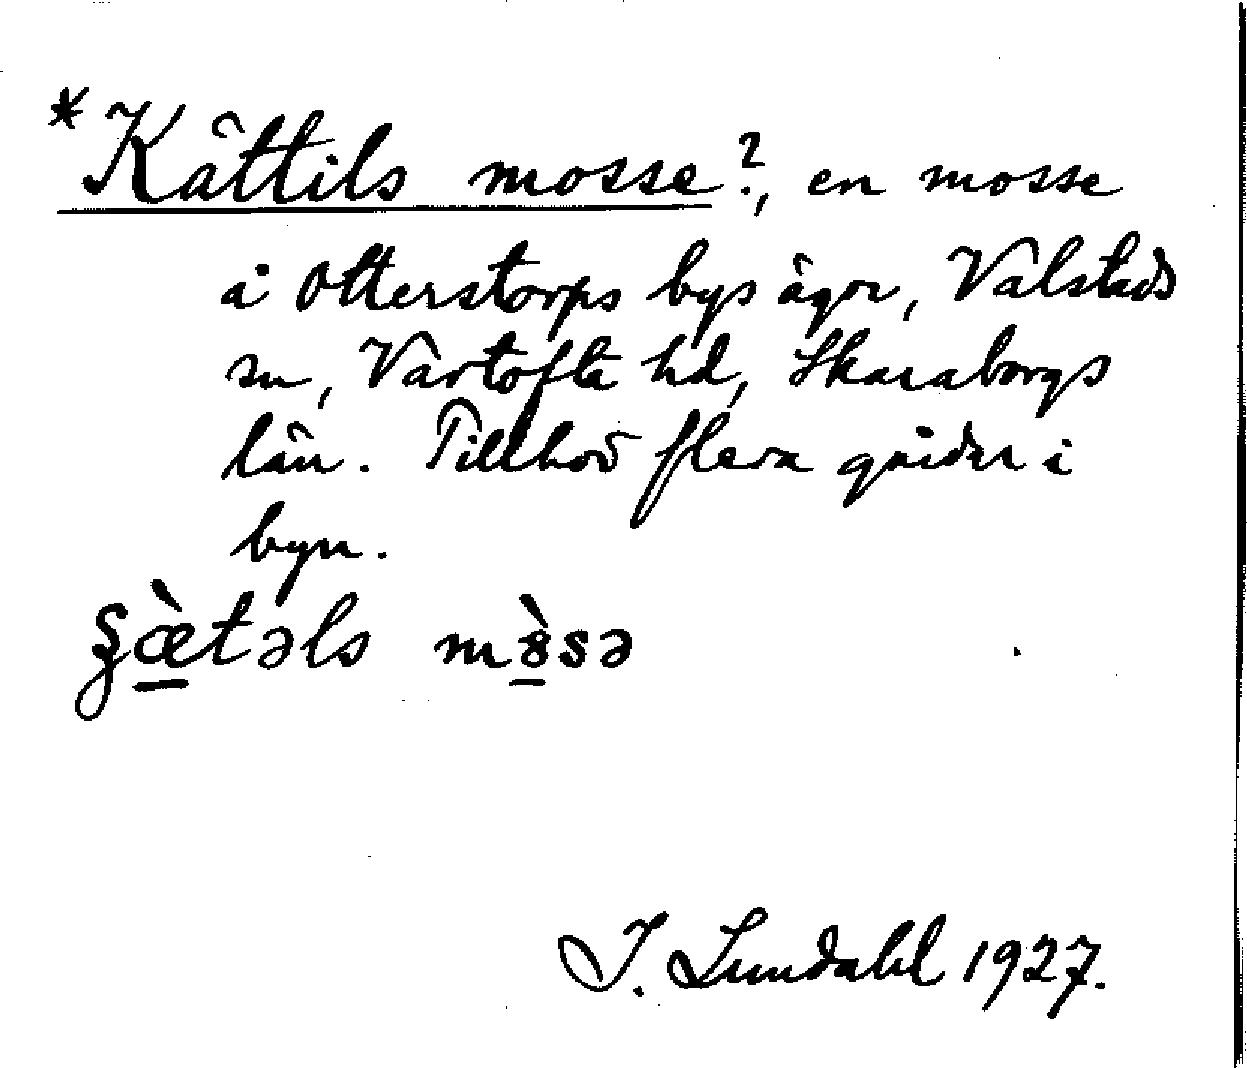 *Kättils mosse?, en mosse
å Otterstorps bys ägor, Valstads
sn, Vartofta hd, Skaraborgs
län. Tillhör flera gårdar i
byn.
ʂæ̀təls mòsə
I. Lundahl 1927.